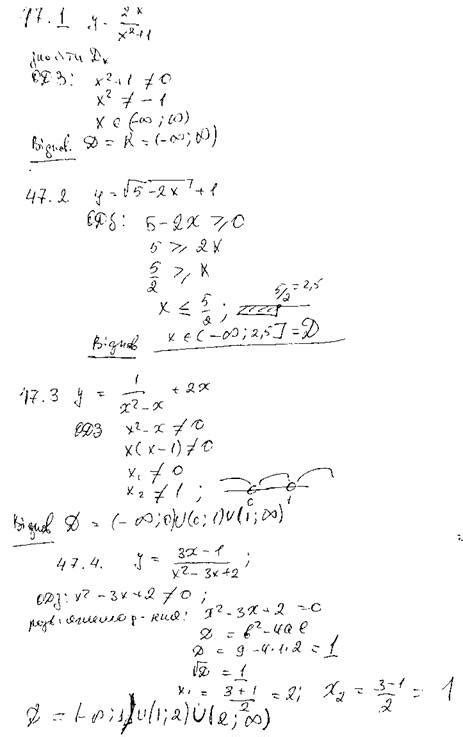 47.1 y = 2x / x²+1
знайти Dx
ОДЗ: x²+1 ≠ 0
x² ≠ -1
x ∈ (-∞; ∞)
Віднов. D = R = (-∞; ∞)
47.2 y = √5-2x + 1
ОДЗ: 5-2x ≥ 0
5 ≥ 2x
5/2 ≥ x
x ≤ 5/2; 5/2 = 2,5
Віднов x ∈ (-∞; 2,5] = D
47.3 y = 1 / x²-x + 2x
ОДЗ x²-x ≠ 0
x(x-1) ≠ 0
x₁ ≠ 0
x₂ ≠ 1; 0 1
Віднов D = (-∞; 0)U(0; 1)U(1; ∞)
47.4. y = 3x-1 / x²-3x+2;
ОДЗ: x²-3x+2 ≠ 0;
x²-3x+2 = 0
D = b²-4ac
D = 9-4·1·2 = 1
√D = 1
x₁ = 3+1 / 2 = 2; x₂ = 3-1 / 2 = 1
D = (-∞; 1)U(1; 2)U(2; ∞)